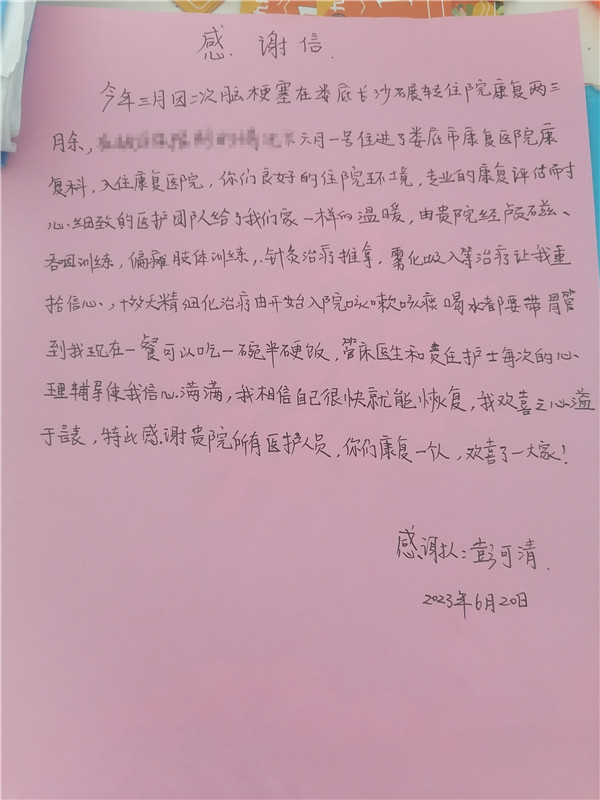 感谢信
今年三月因二次脑梗塞在娄底长沙辗转住院康复两三
月余，六月一号住进了娄底市康复医院康
复科，入住康复医院，你们良好的住院环境，专业的康复评估耐
心细致的医护团队给了我们家一样的温暖，由贵院经颅磁、
吞咽训练，偏瘫肢体训练，针灸治疗推拿，雾化吸入等治疗让我重
拾信心、十数天精细化治疗由开始入院咳嗽咳痰喝水都要带胃管
到我现在一餐可以吃一碗半硬饭，管床医生和责任护士每次的心
理辅导使我信心满满，我相信自己很快就能恢复，我欢喜之心溢
于言表，特此感谢贵院所有医护人员，你们康复一个人，欢喜了一大家！
感谢人：彭可清.
2023年6月20日